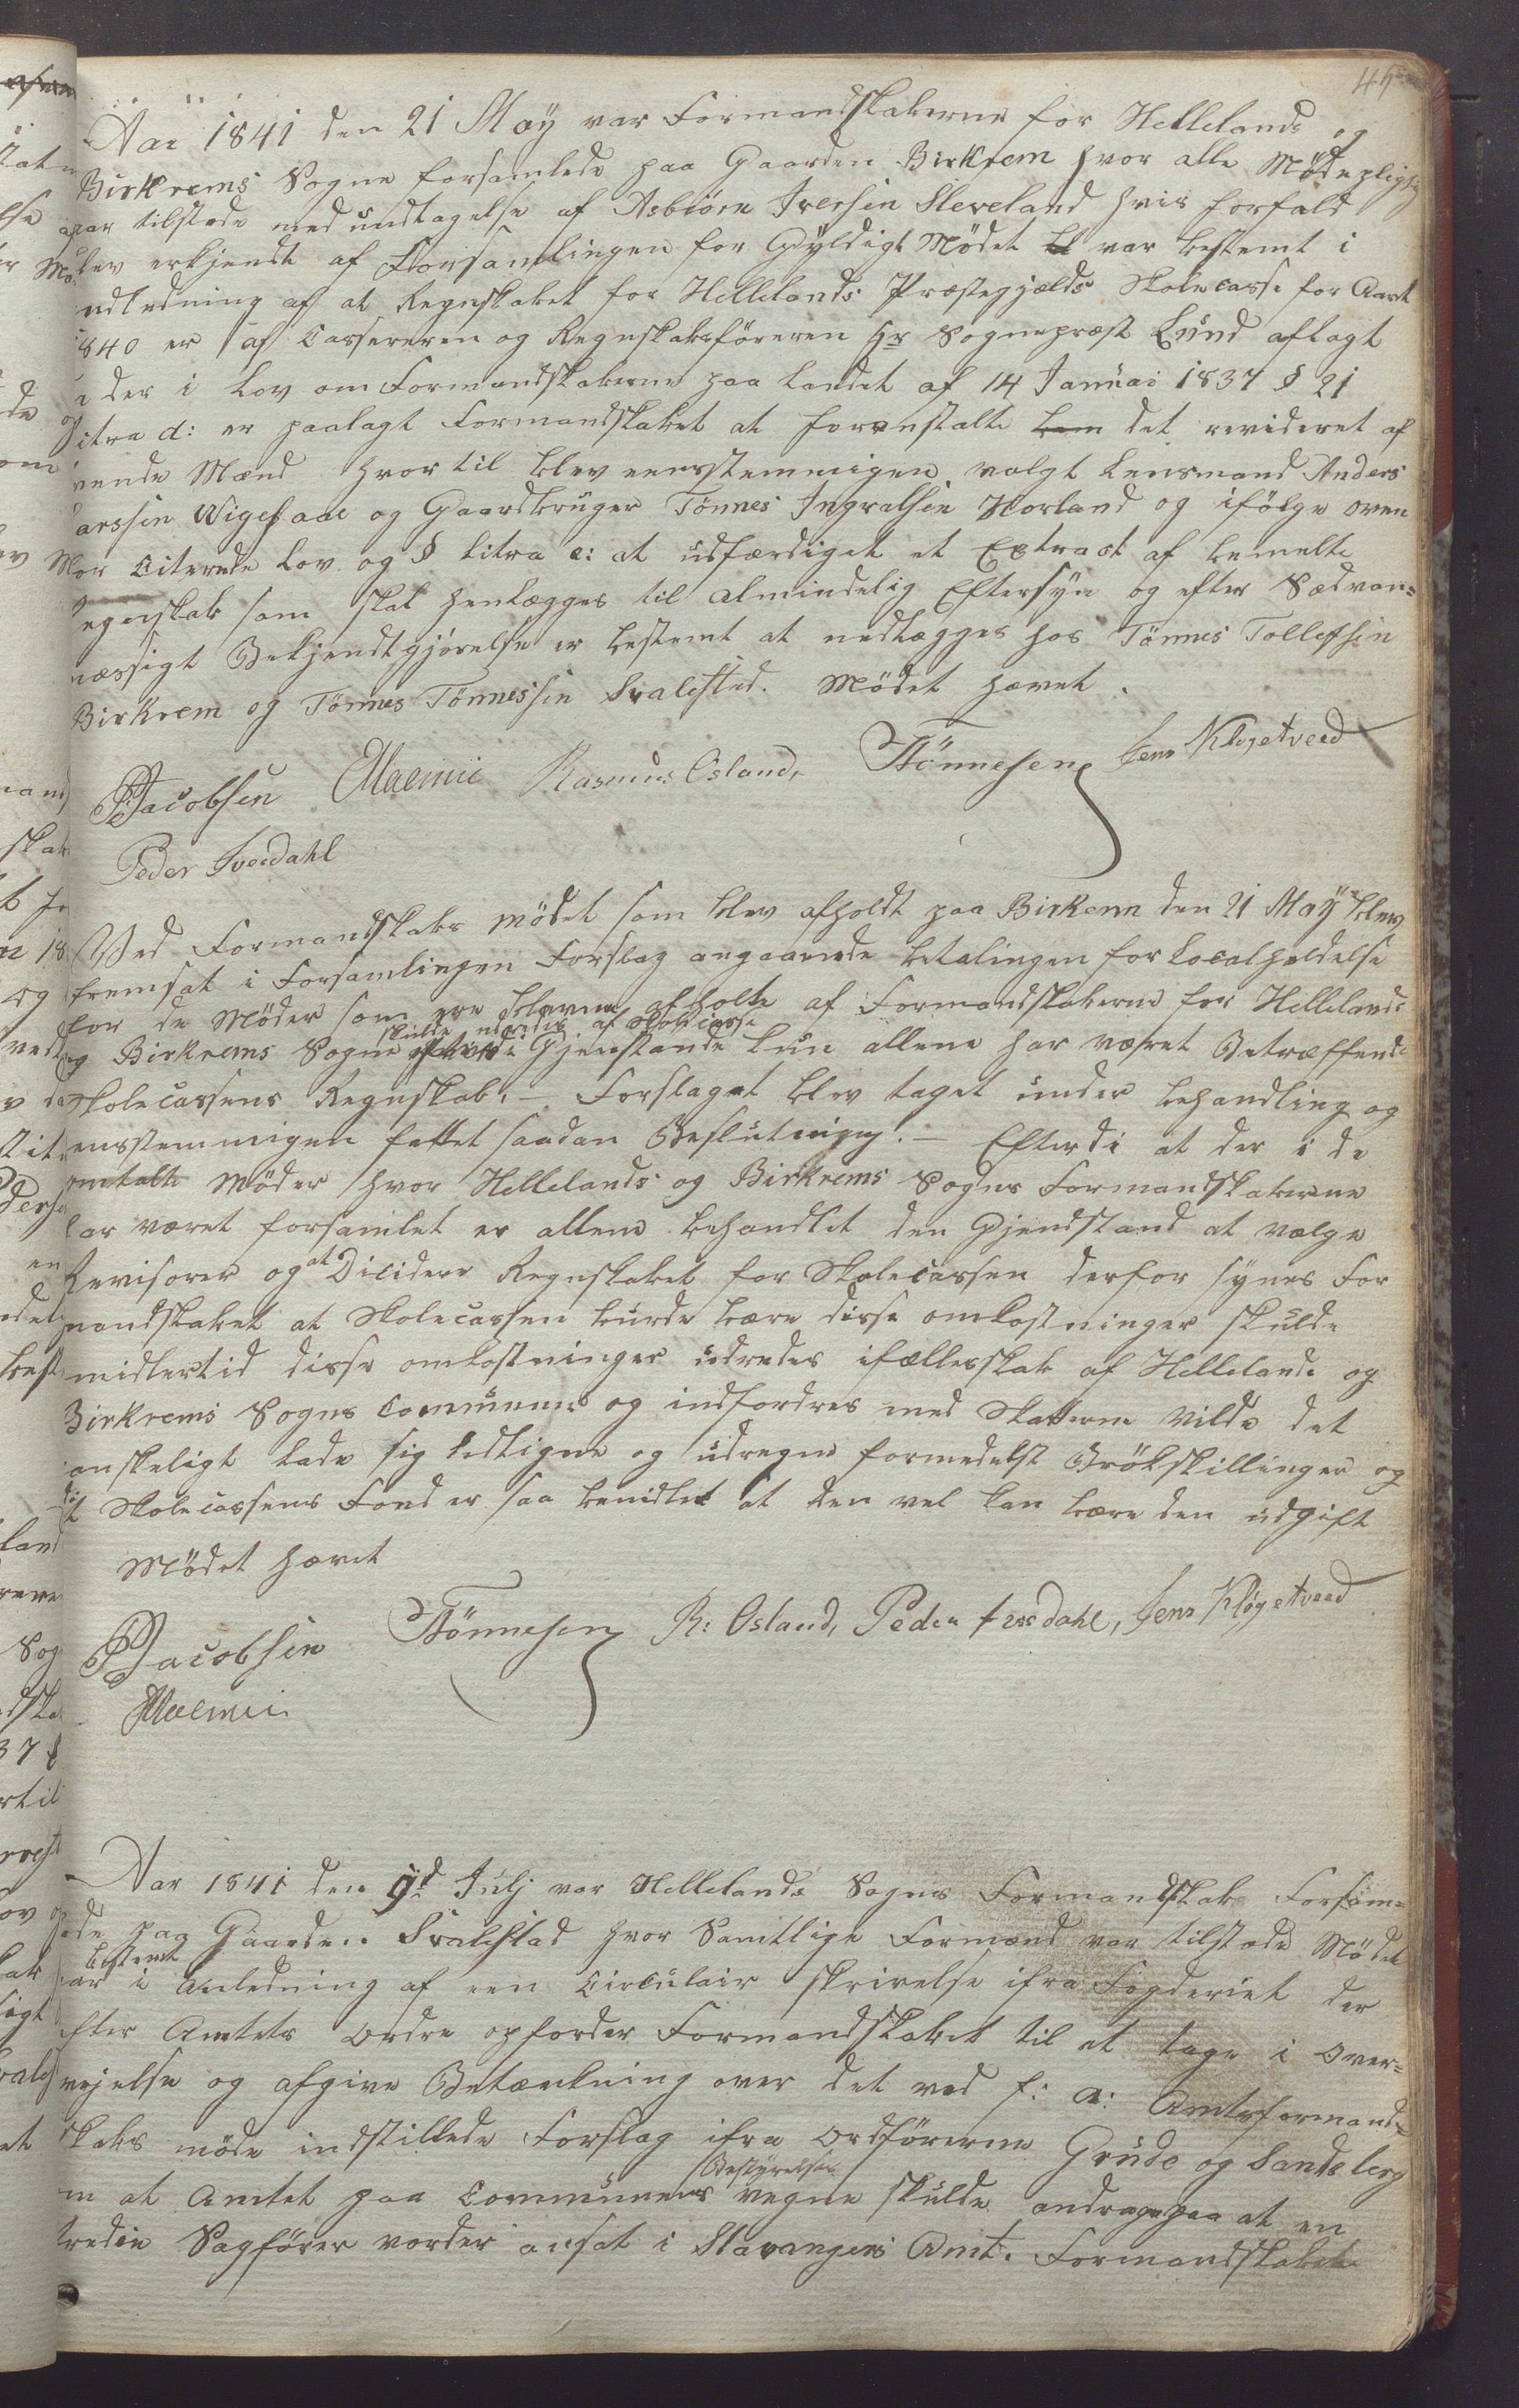 45
Aar 1841 den 21 May var Formandskaberne for Hellelands og
Birkrems Sogne forsamlede paa Gaarden Birkrem hvor alle Mödepligtig
var tilstede med undtagelse af Asbiörn Iversen Sleveland hvis forfald
blev erkjendt af Forsamlingen for Gyldigt Mödet var bestemt i
andledning af at Regnskabet for Hellelands Præstegjælds Skolecasse for Aaret
1840 er af Cassereren og Regnskabsföreren Hr Sognepræst Lund aflagt
der i Lov om Formandskaberne paa Landet af 14 Januar 1837 § 21
Litra d: er paalagt Formandskabet at foranstalte det revideret af
Mænd hvortil blev eensstemmigen valgt Lensmand Anders
Larssen Wigesaae og Gaardbruger Tönnes Ingvalsen Horland og ifölge oven
for Citerede Lov og § Litra e: at udfærdiget et Extract af bemelte
Regnskab som skal henlægges til almindelig Eftersyn og efter Sædvan=
mæssigt Bekjendtgjörelse er bestemt at nedlægges hos Tönnes Tollefsen
Birkrem og Tönnes Tönnessen Svalestad. Mödet hævet.
PJacobsen Maemie Rasmus Osland, TTönnesen Jens Klögetveed
Peder Iversdahl
Ved Formandskabs mödet som blev afholdt paa Birkrem den 21 May blev
fremsat i Forsamlingen Forslag angaaende betalingen for Localholdelse
for de Möder som ere blevne afholte af Formandskaberne for Hellelands
skulde udredes af Skolecasse
og Birkrems Sogne Gjenstande kun allene har været Betræffende
Skolecassens Regnskab. – Forslaget blev taget under behandling og
eensstemmigen fattet saadan Beslutning. – Efterdi at der i de
omtalte Möder hvor Hellelands og Birkrems Sogns Formandskaberne
har været forsamlet er allene behandlet den Gjendstand at vælge
Revisorer og at Dicidere Regnskabet for Skolecassen derfor synes For
mandskabet at Skolecassen burde bære disse omkostninger skulde
midlertid disse omkostninger udredes ifællesskab af Hellelands og
Birkrems Sogns Communer og indfordres med Skatterne vilde det
vanskeligt lade sig ledligne og udregne formedelst Brökskillinger og
Skolecassens Fond er saa bemidlet at den vel kan bære den udgift
Mödet hævet
PJacobsen TTönnesen R: Osland, Peder Iversdahl, Jens Klögetveed
Maemie
Aar 1841 den 9d Julj var Hellelands Sogns Formandskab Forsam=
lede paa Gaarden Svalestad hvor Samtlige Formænd var tilstede Mödet
bestemt
var i Anledning af een Circulair skrivelse ifra Fogderiet der
efter Amtets Ordre opforder Formandskabet til at tage i Over=
vejelse og afgive Betænkning over det ved f: A: Amtsformand=
skabs möde indstillede Forslag ifra Ordförerne Grude og Sandsberg
Bestyrelses
om at Amtet paa Communens vegne skulde andrage paa at en
tredie Sagförer vorder ansat i Stavangers Amt. Formandskabet